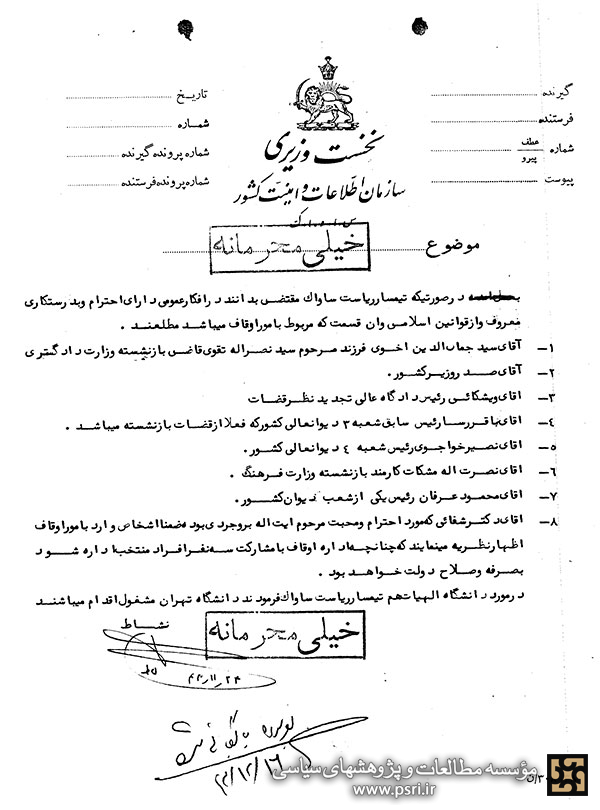 گیرنده
فرستنده
شماره عطف پیرو
پیوست
تاریخ
شماره
شماره پرونده گیرنده
شماره پرونده فرستنده
نخست وزیری
سازمان اطلاعات و امنیت کشور
س.ا.و.ا.ک
موضوع
خیلی محرمانه
در صورتیکه تیمسار ریاست ساواک مقتضی بدانند در افکار عمومی دارای احترام و بدرستکاری
معروف و از قوانین اسلامی وان قسمت که مربوط با مور اوقاف میباشد مطلعند .
۱- آقای سید جمال الدین اخوی فرزند مرحوم سید نصراله تقوی قاضی بازنشسته وزارت دادگستری
۲- آقای صدر وزیر کشور .
۳- اقای ویشکائی رئیس دادگاه عالی تجدید نظر قضات
۴- اقای باقر رسا رئیس سابق شعبه ۳ دیوانعالی کشور که فعلا از قضات بازنشسته میباشد .
۵- اقای نصیر خواجوی رئیس شعبه ٤ دیوانعالی کشور .
۶- اقای نصرت اله مشکات کارمند بازنشسته وزارت فرهنگ .
۷- اقای محمود عرفان رئیس یکی از شعب دیوان کشور .
۸- اقای دکتر شفائی که مورد احترام و محبت مرحوم ایت اله بروجردی بوده ضمنا اشخاص وارد با مور اوقاف
اظهار نظریه مینمایند که چنانچه اداره اوقاف با مشارکت سه نفر افراد منتخب اداره شود
بصرفه و صلاح دولت خواهد بود .
در مورد دانشگاه الهیات هم تیمسار ریاست ساواک فرمودند دانشگاه تهران مشغول اقدام میباشند
نشاط
خیلی محرمانه
۲۴ر۱۱ر۴۲
۴۲/۱۲/۱۶
مؤسسه مطالعات و پژوهشهای سیاسی
www.psri.ir